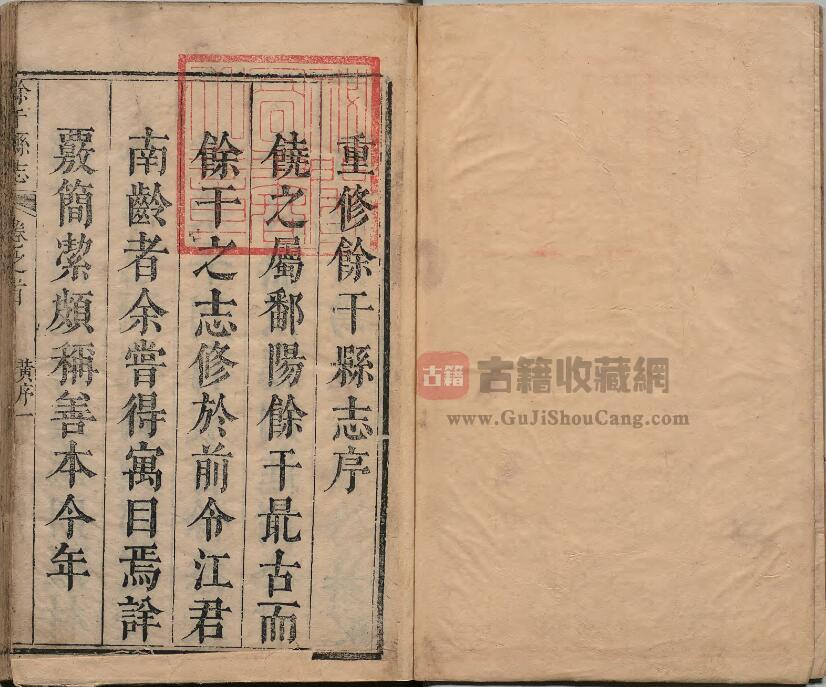 重修餘干縣志序
饒之屬鄱陽餘干最古而
餘干之志修於前令江君
南齡者余嘗得寓目焉詮
覈簡潔頗稱善本今年
餘干縣志
卷之首
黃序一
古籍
古籍收藏網
www.GuJiShouCang.com